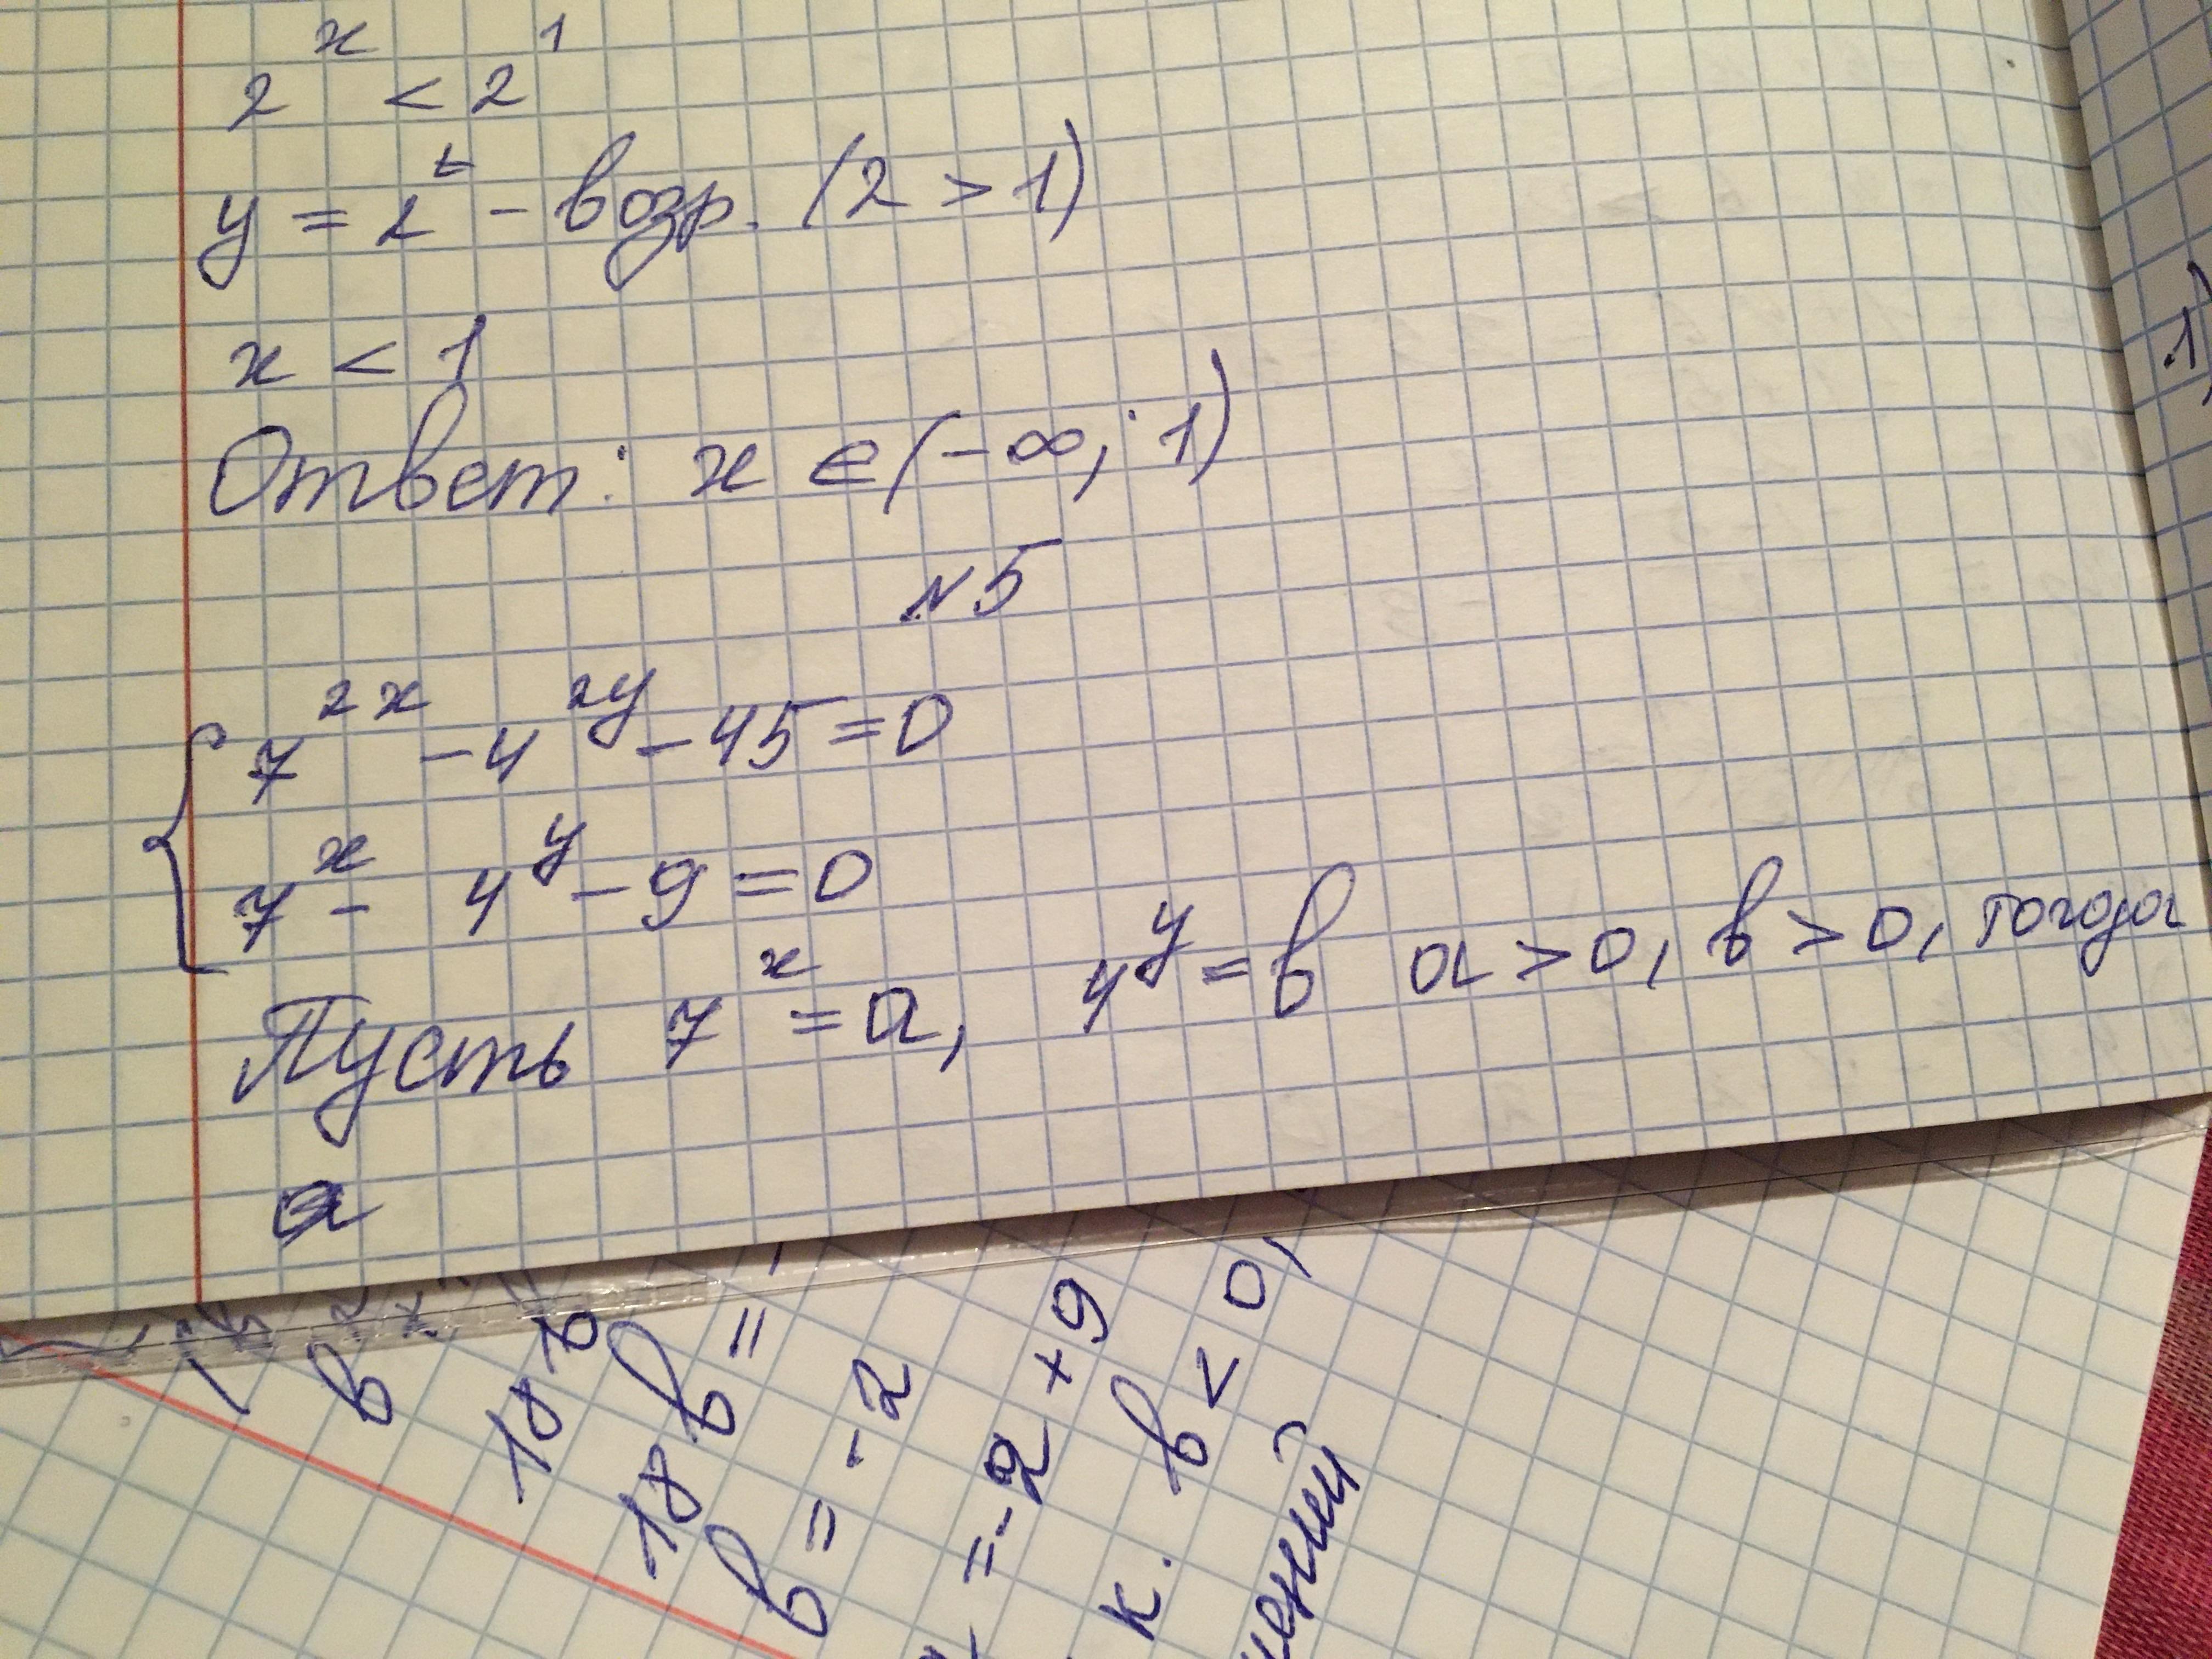 2^x < 2^1
y = 2^t - возр. (2 > 1)
x < 1
Ответ: x ∈ (-∞; 1)
N5
{ 7^2x - 4^2y - 45 = 0
7^x - 4^y - 9 = 0
Пусть 7^x = a, 4^y = в a > 0, в > 0, тогда
a
18 в =
в = -2
= -2 + 9
к. в < 0,
1)